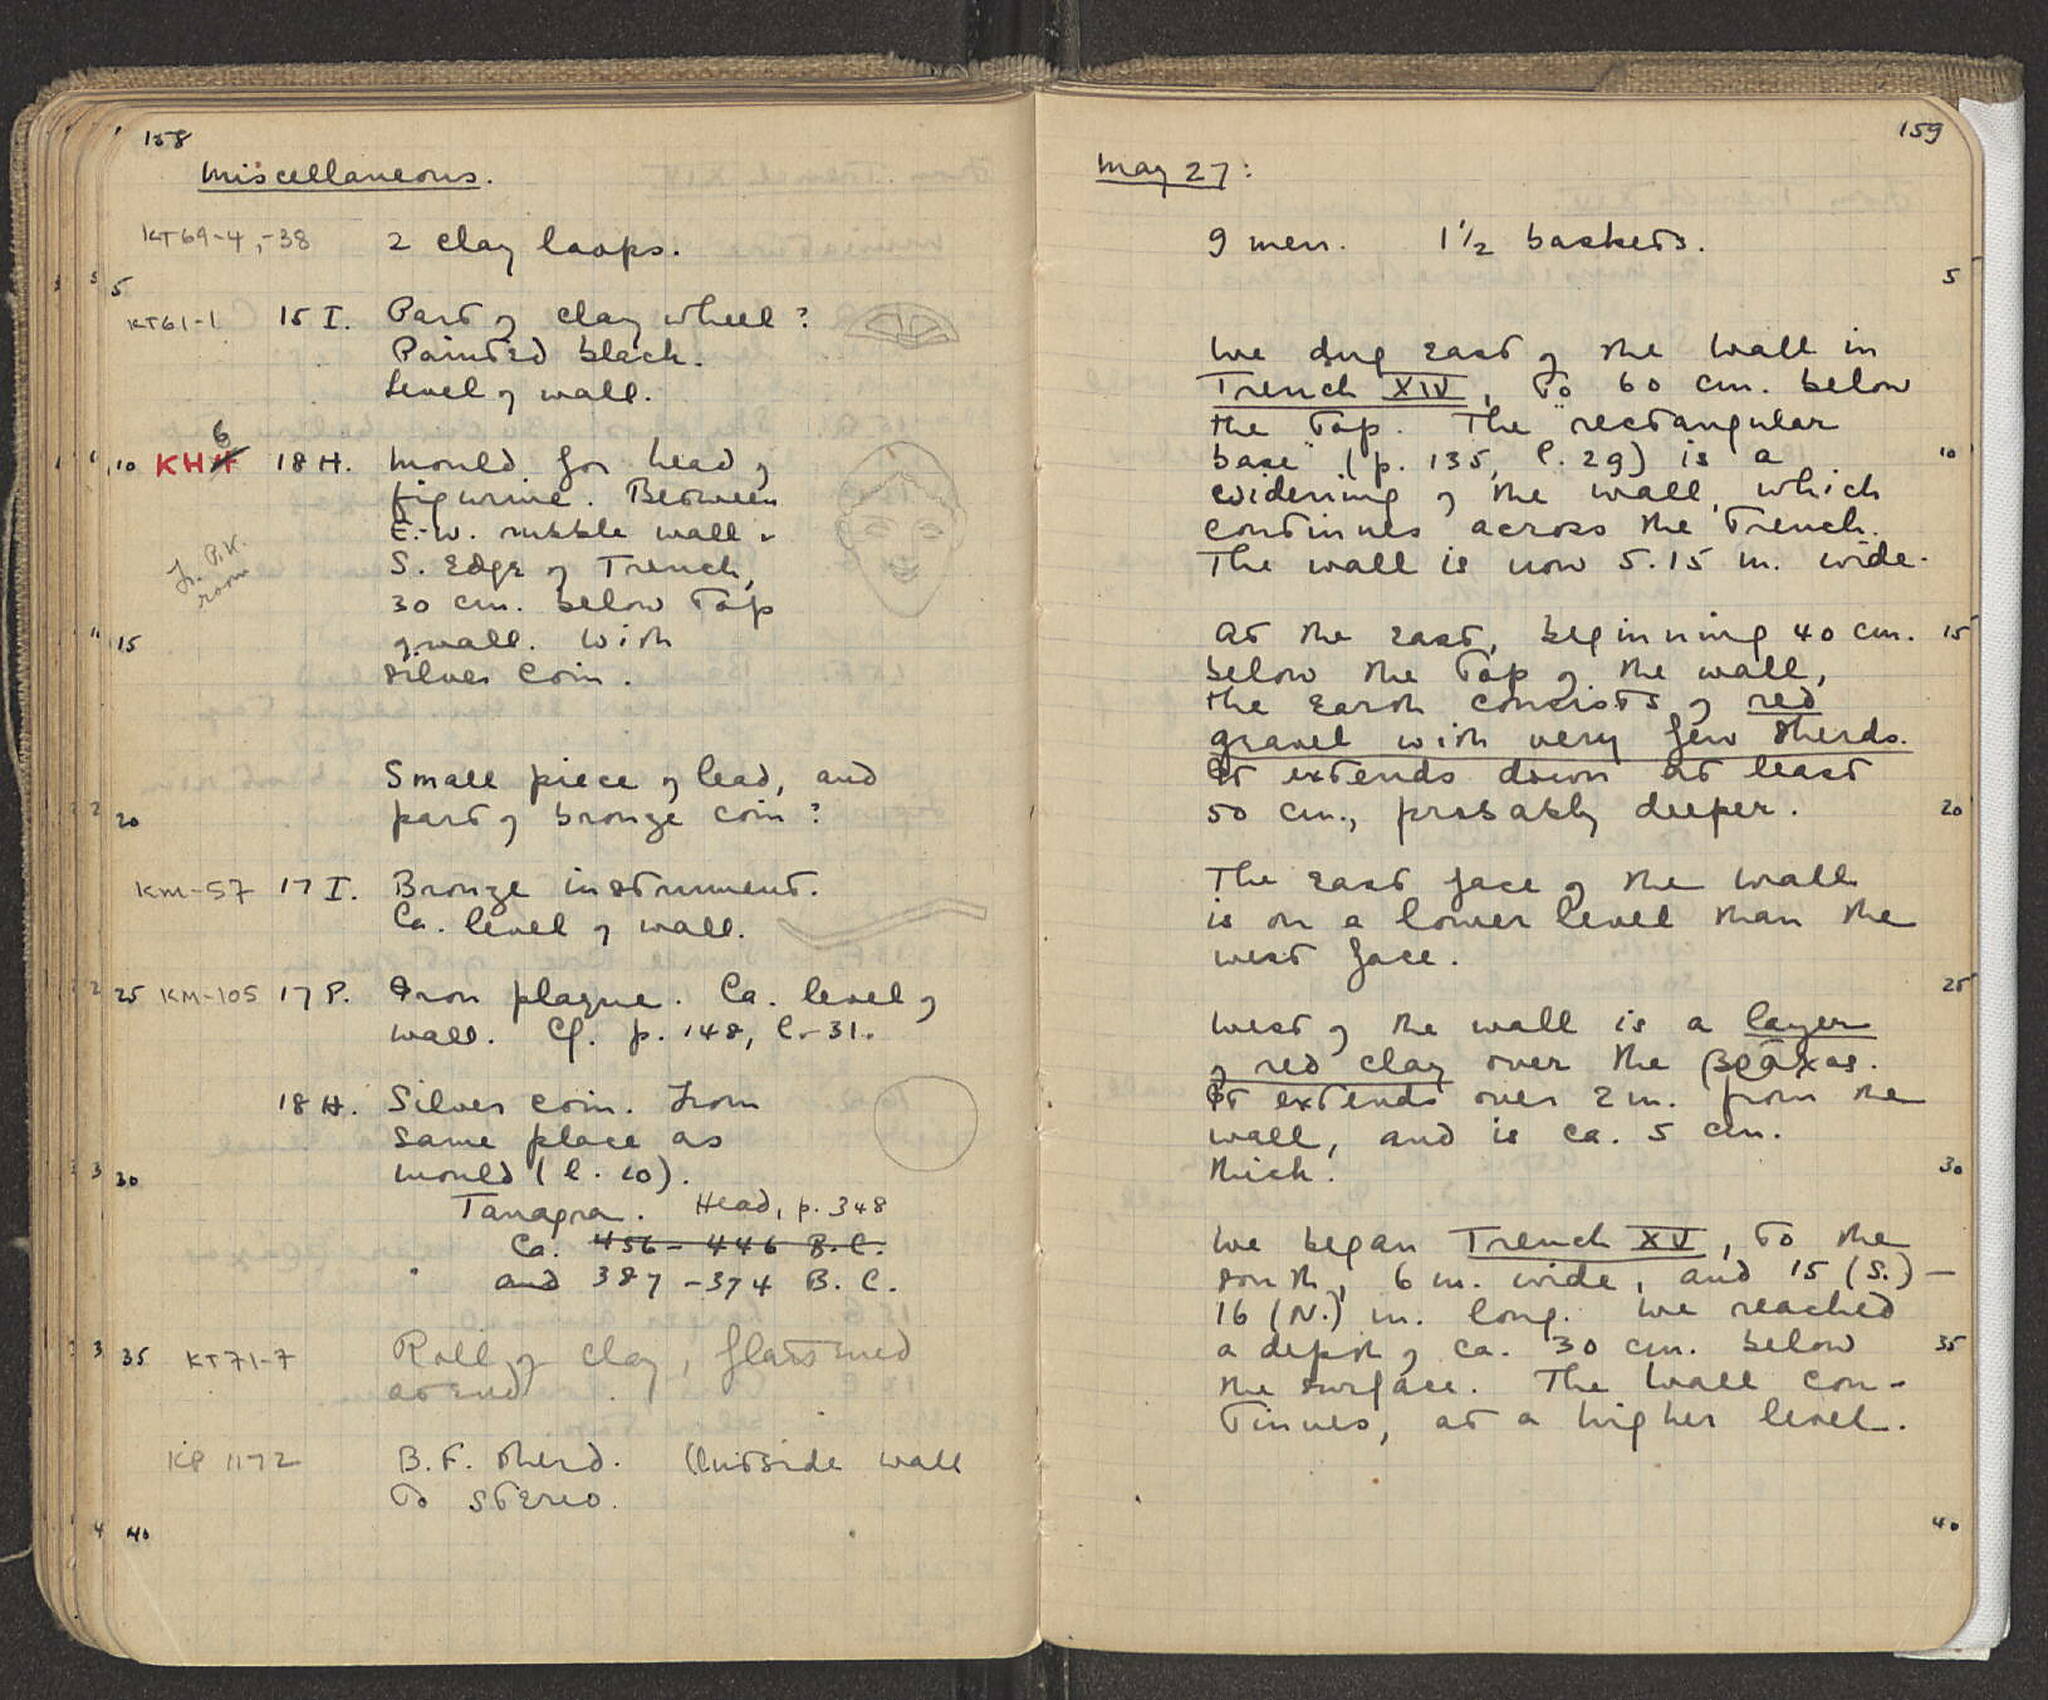 158
Miscellaneous.
KT69-4, -38 2 clay loops.
5
KT61-1 15 I. Part of clay wheel?
Painted black.
Level of wall.
6
10 KH 18 H. Mould for head of
figurine. Between
E.-W. rubble wall &
S. Edge of Trench,
30 cm. below top
15 of wall. With
silver coin.
Small piece of lead, and
20 part of bronze coin?
KM-57 17 I. Bronze instrument.
Ca. level of wall.
25 KM-105 17 P. Iron plaque. Ca. level of
wall. Cf. p. 148, l. 31.
18 H. Silver coin. From
same place as
30 mould (l. 10).
Tanagra. Head, p. 348
Ca. 456 - 446 B.C.
and 387 - 374 B.C.
35 KT71-7 Roll of clay, flattened
at end.
KP 1172 B.F. sherd. Outside wall
to stereo.
40
159
May 27:
9 men. 1 1/2 baskets.
5
We dug east of the wall in
Trench XIV, to 60 cm. below
the top. The "rectangular
base" (p. 135, l. 29) is a 10
widening of the wall, which
continues across the trench.
The wall is now 5.15 m. wide.
At the east, beginning 40 cm. 15
below the top of the wall,
the earth consists of red
gravel with very few sherds.
It extends down at least
50 cm., probably deeper. 20
The east face of the wall
is on a lower level than the
west face.
25
West of the wall is a layer
of red clay over the βράχος.
It extends over 2 m. from the
wall, and is ca. 5 cm.
thick. 30
We began Trench XV, to the
south, 6 m. wide, and 15 (S.) -
16 (N.) m. long. We reached
a depth of ca. 30 cm. below 35
the surface. The wall con-
tinues, at a higher level.
40